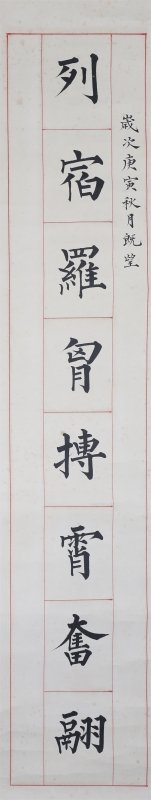 歲次庚寅秋月既望
列宿羅胷摶霄奮翮